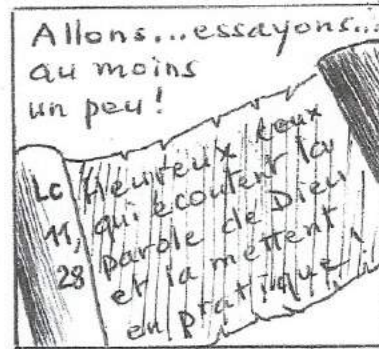 Allons...essayons...
au moins
un peu!
Lc
11,
28
Heureux ceux
qui écoutent la
parole de Dieu
et la mettent
en pratique